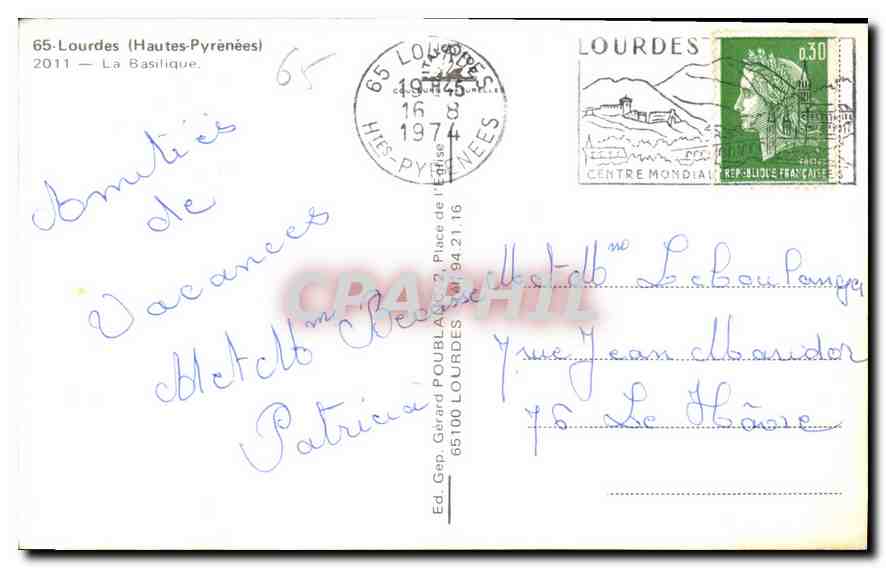 65-Lourdes (Hautes-Pyrénées)
2011 — La Basilique.
65
65 LOURDES
19H45
16-8
1974
HTES-PYRENEES
LOURDES
CENTRE MONDIAL
0,30
REPUBLIQUE FRANÇAISE
Amitiés
de
Vacances
M et Mm Becasse
Patricia
Ed. Gep. Gérard POUBLANC 2, Place de l'Eglise
65100 LOURDES Tél. 94.21.16
M et Mme Leboulanger
7 rue Jean Maridor
76 Le Hâvre
CPARHIL